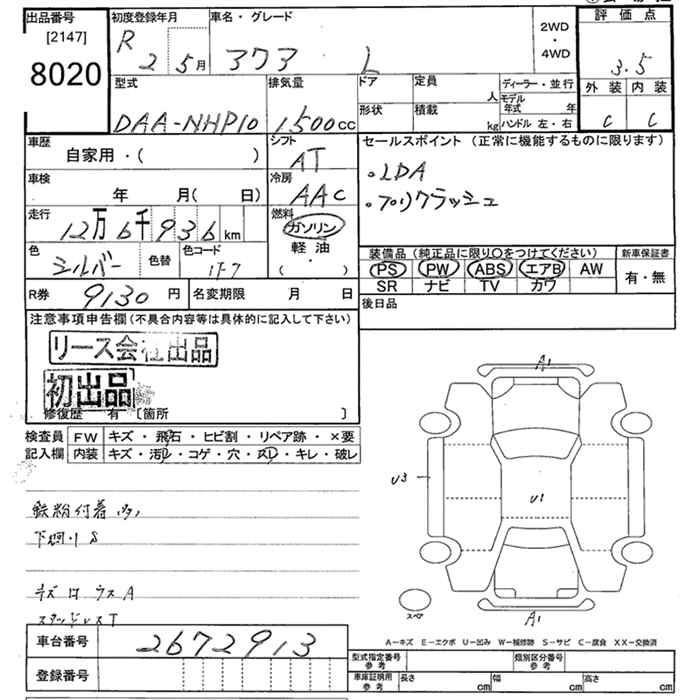 出品番号
[2147]
8020
初度登録年月
R 2 5月
車名・グレード
373 L
2WD
・
4WD
評価点
3.5
外装 内装
C C
型式
DAA-NHP10
排気量
1500cc
ドア
形状
定員
人
積載
kg
ディーラー・並行
モデル年式 年
ハンドル 左・右
車歴
自家用・( )
シフト
AT
車検
年 月( 日)
冷房
AAC
走行
12万6千936km
燃料
ガソリン
軽油
( ・ )
色
シルバー
色替
色コード
1F7
R券 9130円
名変期限 月 日
セールスポイント (正常に機能するものに限ります)
・LDA
・プリクラッシュ
装備品(純正品に限り〇をつけてください)
PS PW ABS エアB AW
SR ナビ TV カワ
新車保証書
有・無
後日品
注意事項申告欄(不具合内容等は具体的に記入して下さい)
リース会社出品
初出品
修復歴 有 [箇所 ]
検査員
記入欄
FW キズ・飛石・ヒビ割・リペア跡・×要
内装 キズ・汚レ・コゲ・穴・スレ・キレ・破レ
鉄粉付着
下廻りS
スタッドレスT
A1
U3
U1
A1
スペア
車台番号 2672913
登録番号
A-キズ E-エクボ U-凹み W-補修跡 S-サビ C-腐食 XX-交換済
型式指定番号
参考
類別区分番号
参考
車庫証明用
参考
長さ cm
幅 cm
高さ cm